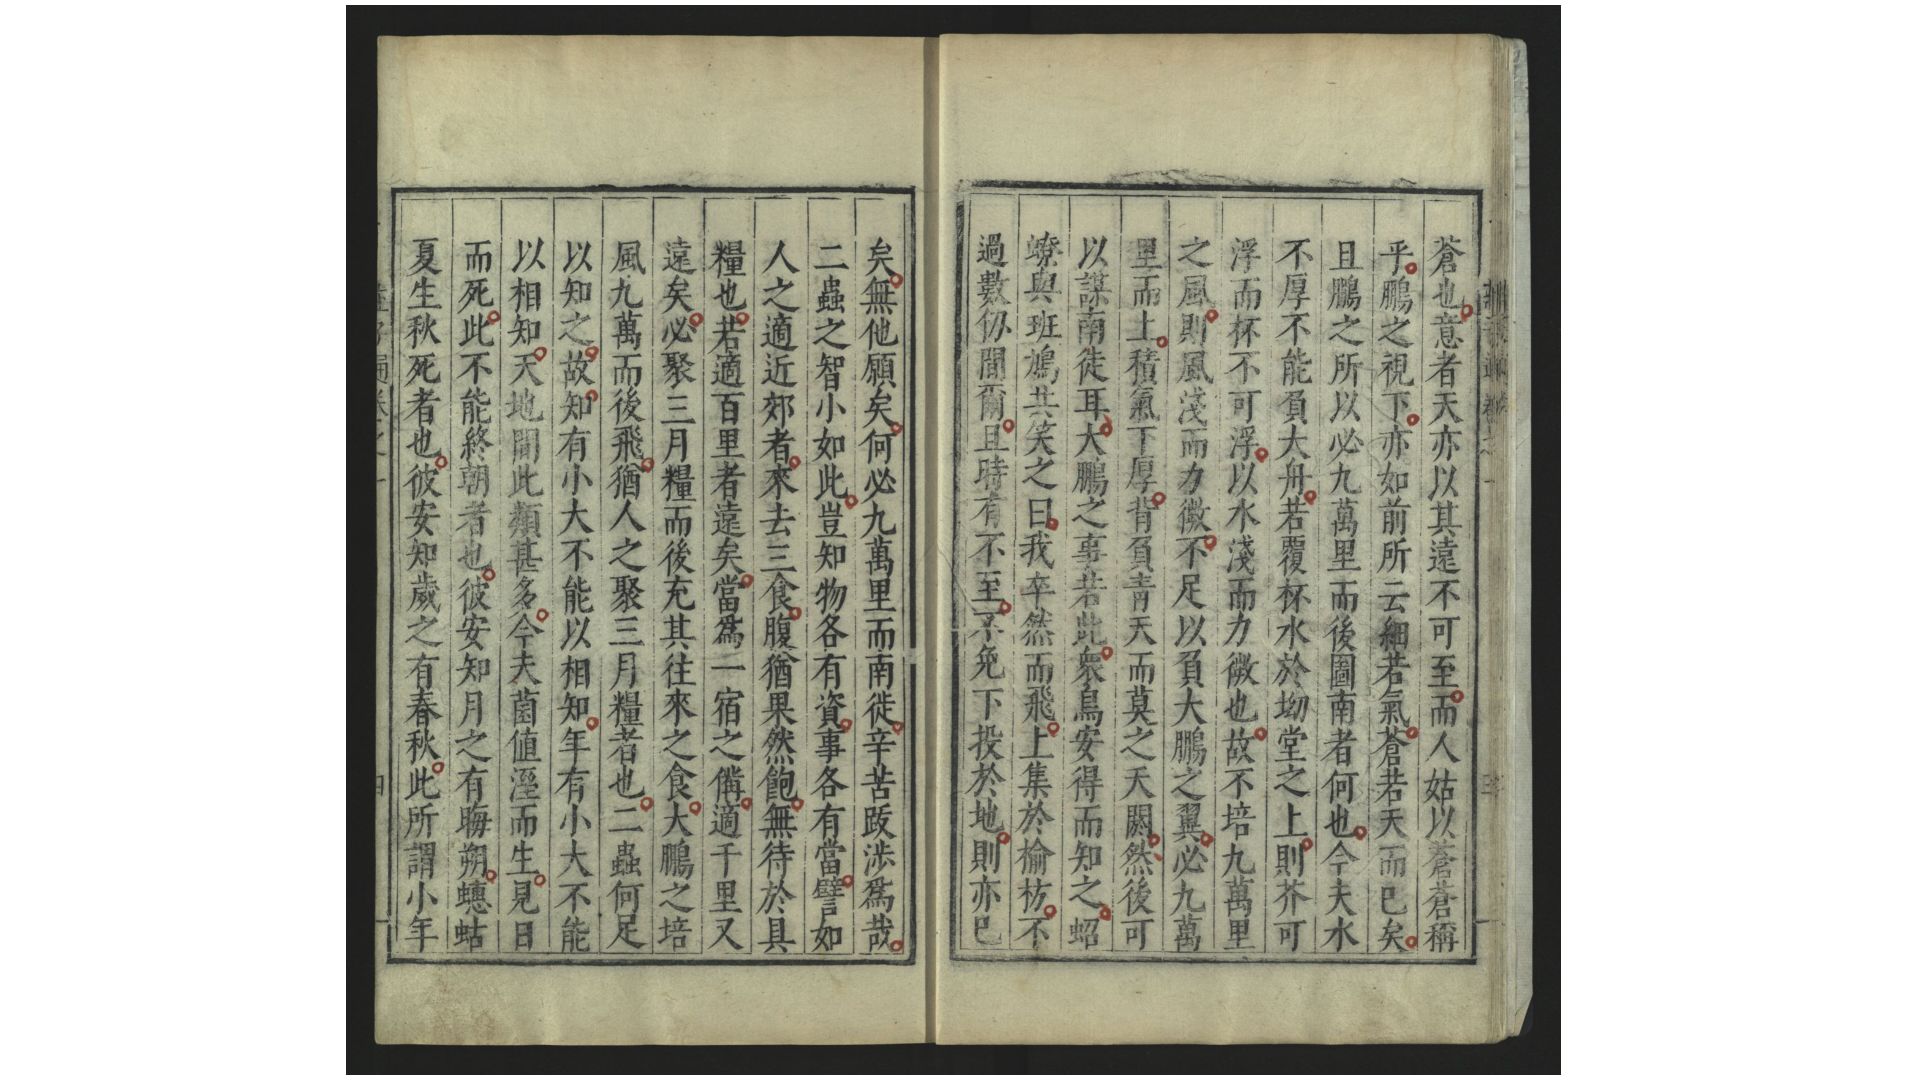 蒼也意者天亦以其遠不可至而人姑以蒼蒼稱
乎鵬之視下亦如前所云細若氣蒼若天而已矣
且鵬之所以必九萬里而後圖南者何也今夫水
不厚不能負大舟若覆杯水於坳堂之上則芥可
浮而杯不可浮以水淺而力微也故不培九萬里
之風則風淺而力微不足以負大鵬之翼必九萬
里而上積氣下厚背負青天而莫之夭閼然後可
以謀南徙耳大鵬之事若此衆鳥安得而知之蛁
蟟與班鳩共笑之曰我卒然而飛上集於榆枋不
過數仞間爾且時有不至不免下投於地則亦已
矣無他願矣何必九萬里而南徙辛苦跋涉爲哉
二蟲之智小如此豈知物各有資事各有當譬如
人之適近郊者來去三食腹猶果然飽無待於具
糧也若適百里者遠矣當爲一宿之備適千里又
遠矣必聚三月糧而後充其往來之食大鵬之培
風九萬而後飛猶人之聚三月糧者也二蟲何足
以知之故知有小大不能以相知年有小大不能
以相知天地間此類甚多今夫菌値溼而生見日
而死此不能終朝者也彼安知月之有晦朔蟪蛄
夏生秋死者也彼安知歲之有春秋此所謂小年